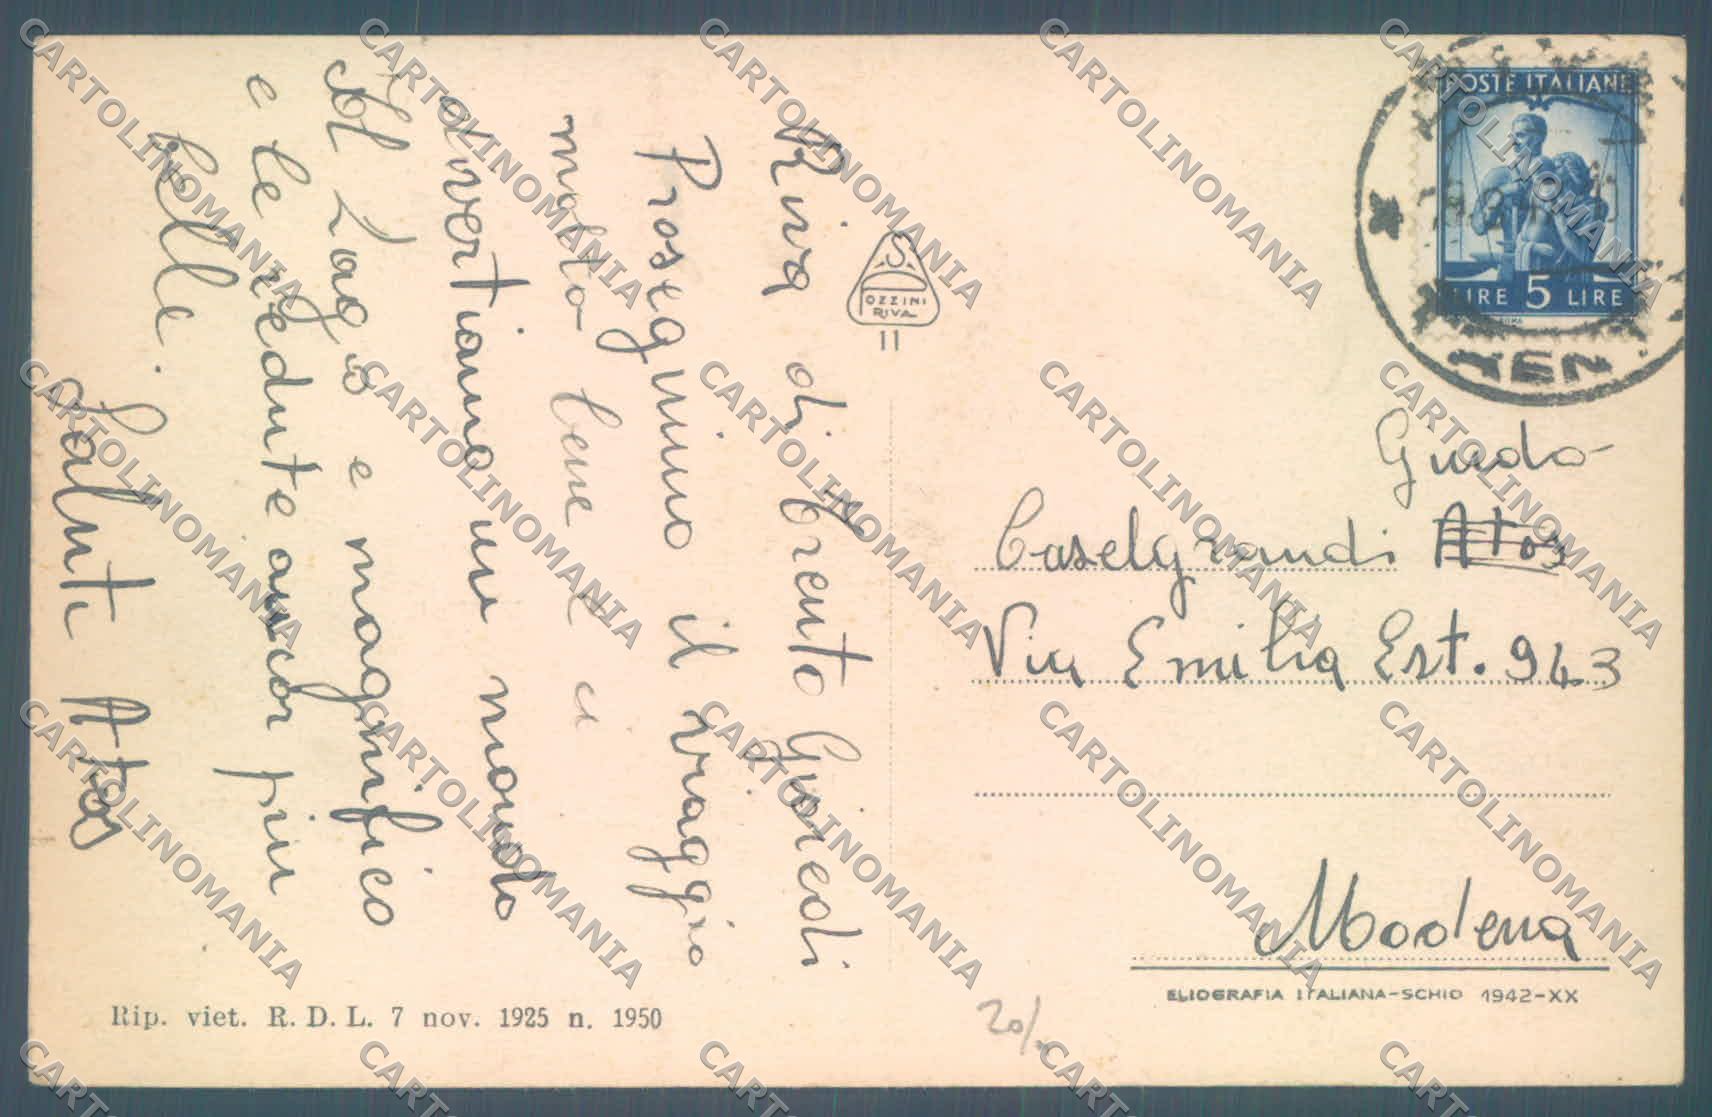 Riva di Trento Giovedi
Proseguimo il viaggio
molto bene e ci
divertiamo un mondo
Il Lago è magnifico
e le vedute ancor più
belle.
Saluti Atos
S
OZZINI
RIVA
11
POSTE ITALIANE
LIRE 5 LIRE
Guido
Caselgrandi Atos
Via Emilia Est. 943
Modena
ELIOGRAFIA ITALIANA-SCHIO 1942-XX
Rip. viet. R. D. L. 7 nov. 1925 n. 1950
20/
CARTOLINOMANIA